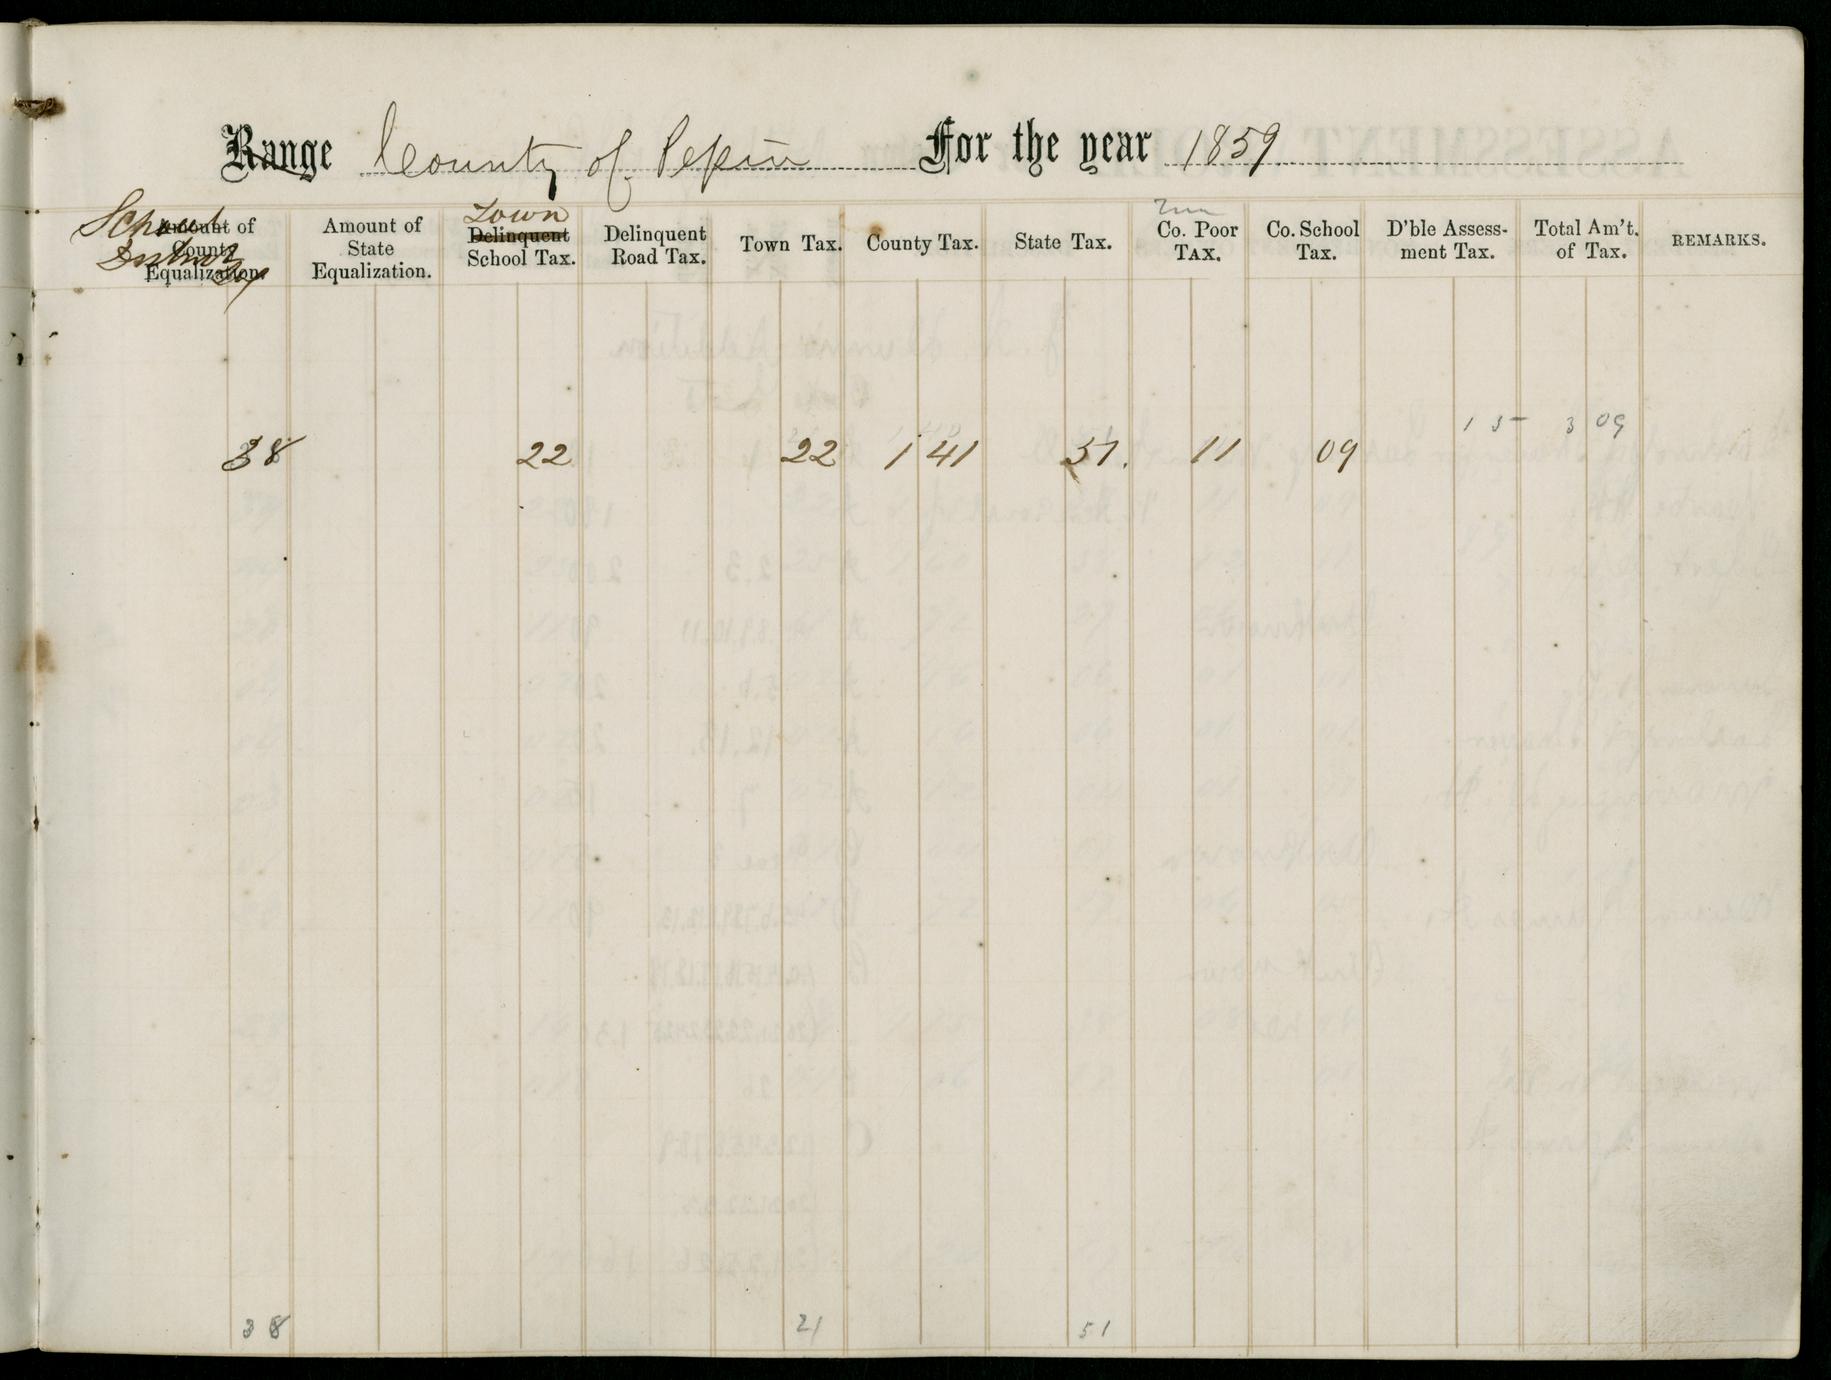 Range County of Pepin For the year 1859
School District Tax
Amount of County Equalization.
Amount of State Equalization.
Town
Delinquent School Tax.
Delinquent Road Tax.
Town Tax.
County Tax.
State Tax.
Town
Co. Poor Tax.
Co. School Tax.
D'ble Assess- ment Tax.
Total Am't. of Tax.
REMARKS.
15 3 09
38 22 22 1 41 51. 11 09
38 21 51